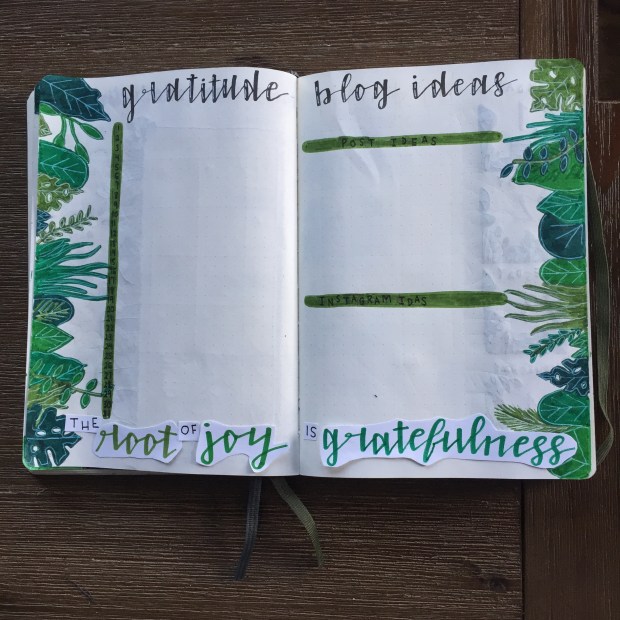 gratitude
blog ideas
POST IDEAS
INSTAGRAM IDAS
THE root OF joy IS gratefulness